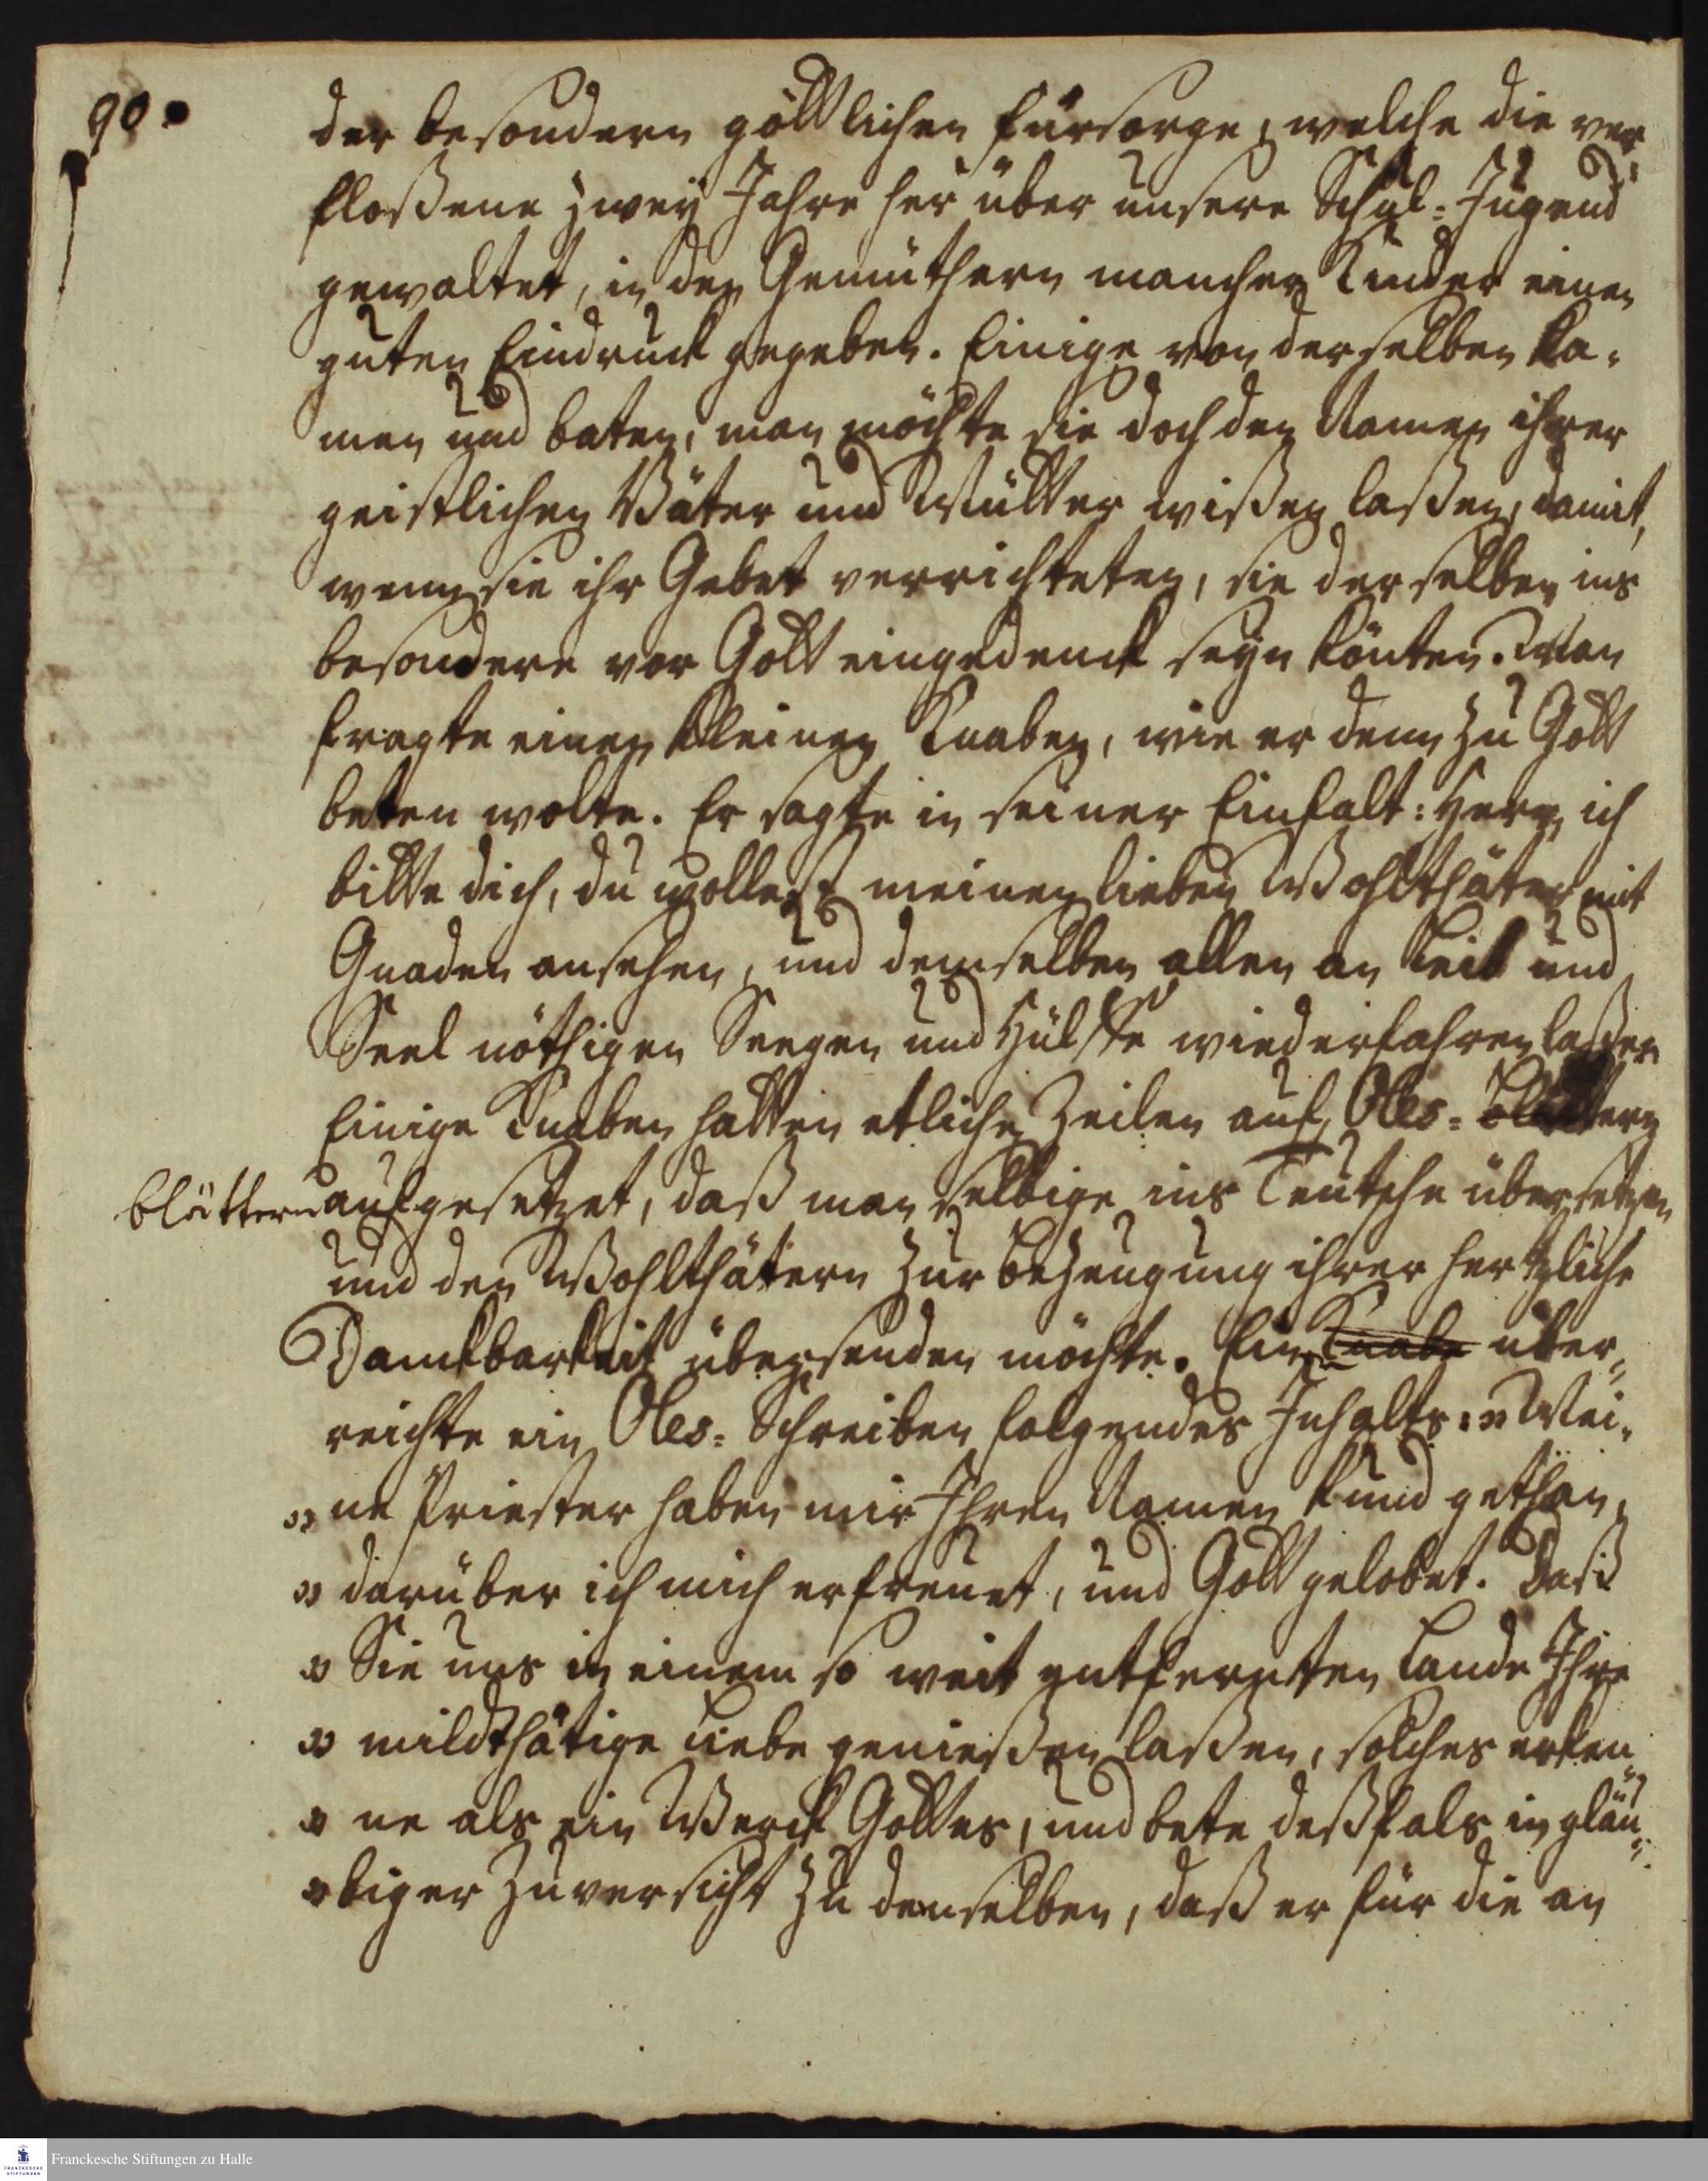 90.
der besondern göttlichen Fürsorge, welche die ver¬
floßene zwey Jahre her über unsere Schul-Jugend
gewaltet, in den Gemüthern mancher Kinder einen
guten Eindruck gegeben. Einige von derselben ka¬
men und baten, man möchte sie doch den Namen ihrer
geistlichen Väter und Mütter wißen laßen, damit,
wenn sie ihr Gebet verrichteten, sie derselben ins
besondere vor Gott eingedenck seyn könten. Man
fragte einen kleinen Knaben, wie er denn zu Gott
beten wolte. Er sagte in seiner Einfalt: Herr, ich
bitte dich, du wollest meinen lieben Wohlthäter mit
Gnaden ansehen, und demselben allen an Leib und
Seel nöthigen Seegen und Hülffe wiederfahren laßen
Einige Knaben hatten etliche Zeilen auf Oles-Blättern
blättern aufgesetzet, daß man selbige ins Teutsche übersetzen
und den Wohlthätern zur Bezeugung ihrer hertzliche
Danckbarkeit übersenden möchte. Ein Knabe über¬
reichte ein Oles-Schreiben folgendes Inhalts: „Mei¬
„ne Priester haben mir Ihren Namen kund gethan,
„darüber ich mich erfreuet, und Gott gelobet. Daß
„Sie uns in einem so weit entfernten Lande Ihre
„mildthätige Liebe genießen laßen, solches erken¬
„ne als ein Werck Gottes, und bete deßfals in gläu¬
„biger Zuversicht zu demselben, daß er für die an
Franckesche Stiftungen zu Halle
FRANCKESCHE
STIFTUNGEN